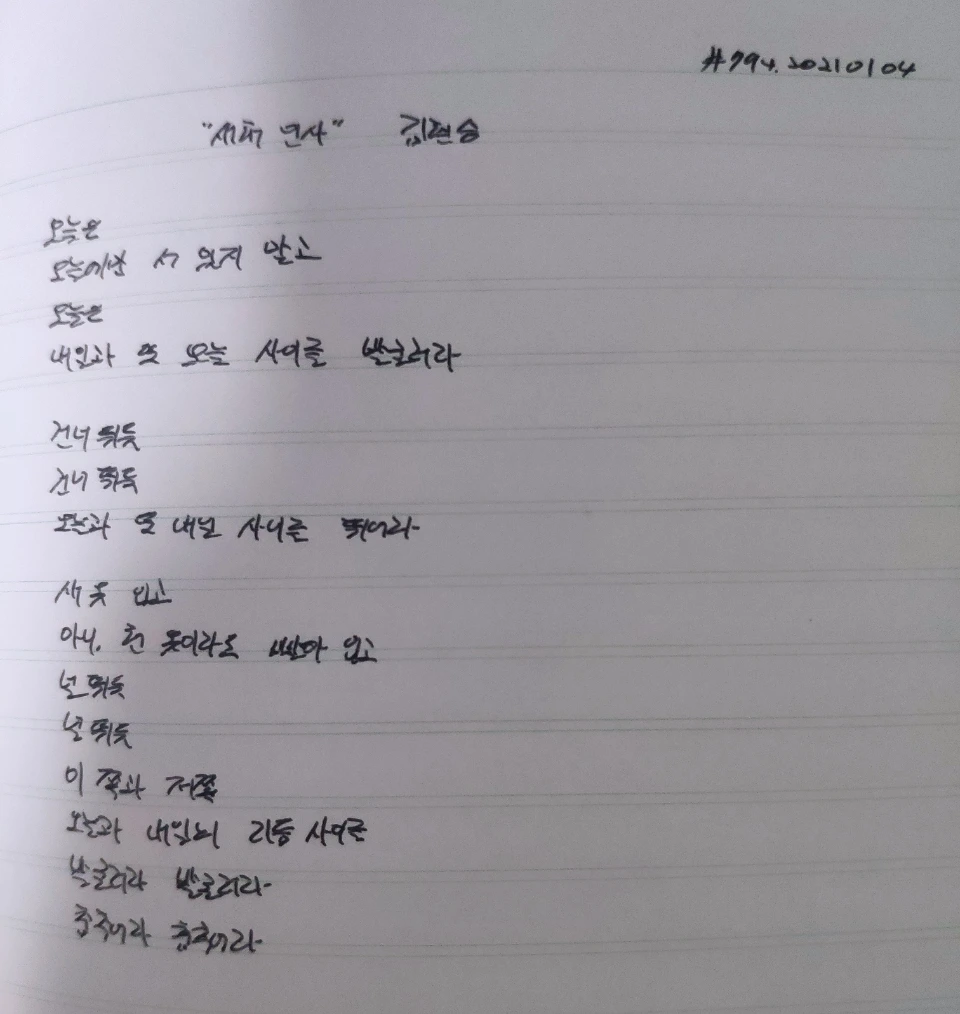 #794. 20210104
"새해 인사" 김현승
오늘은
오늘에만 서 있지 말고
오늘은
내일과 또 오늘 사이를 발굴러라
건너 뛰듯
건너 뛰듯
오늘과 또 내일 사이를 뛰어라
새 옷 입고
아니, 헌 옷이라도 빨아 입고
널 뛰듯
널 뛰듯
이 쪽과 저쪽
오늘과 내일의 리듬 사이를
발굴러라 발굴러라
춤추어라 춤추어라